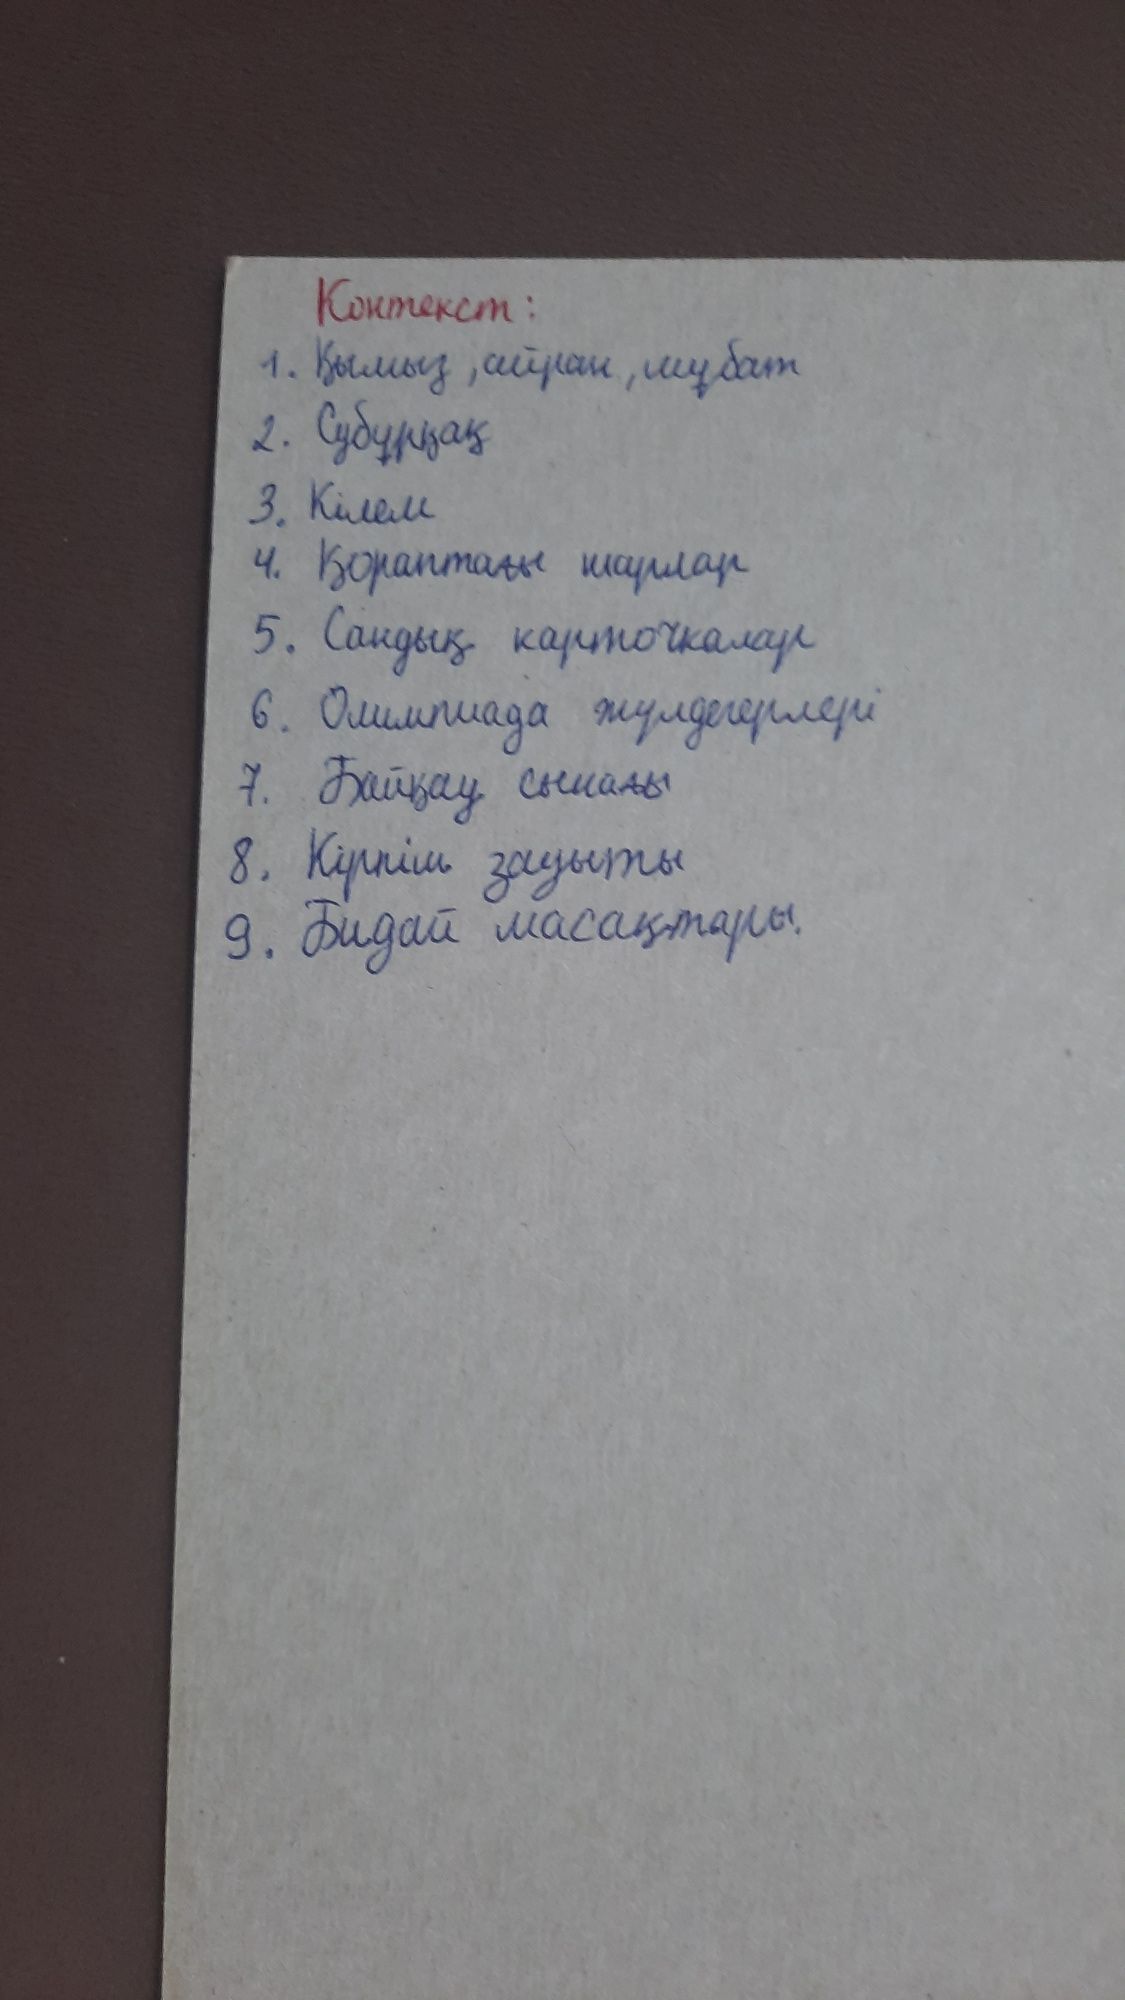 Контекст:
1. Қымыз, айран, шұбат
2. Субұрқақ
3. Кілем
4. Қораптағы шарлар
5. Сандық карточкалар
6. Олимпиада жүлдегерлері
7. Байқау сынағы
8. Кірпіш зауыты
9. Бидай масақтары.